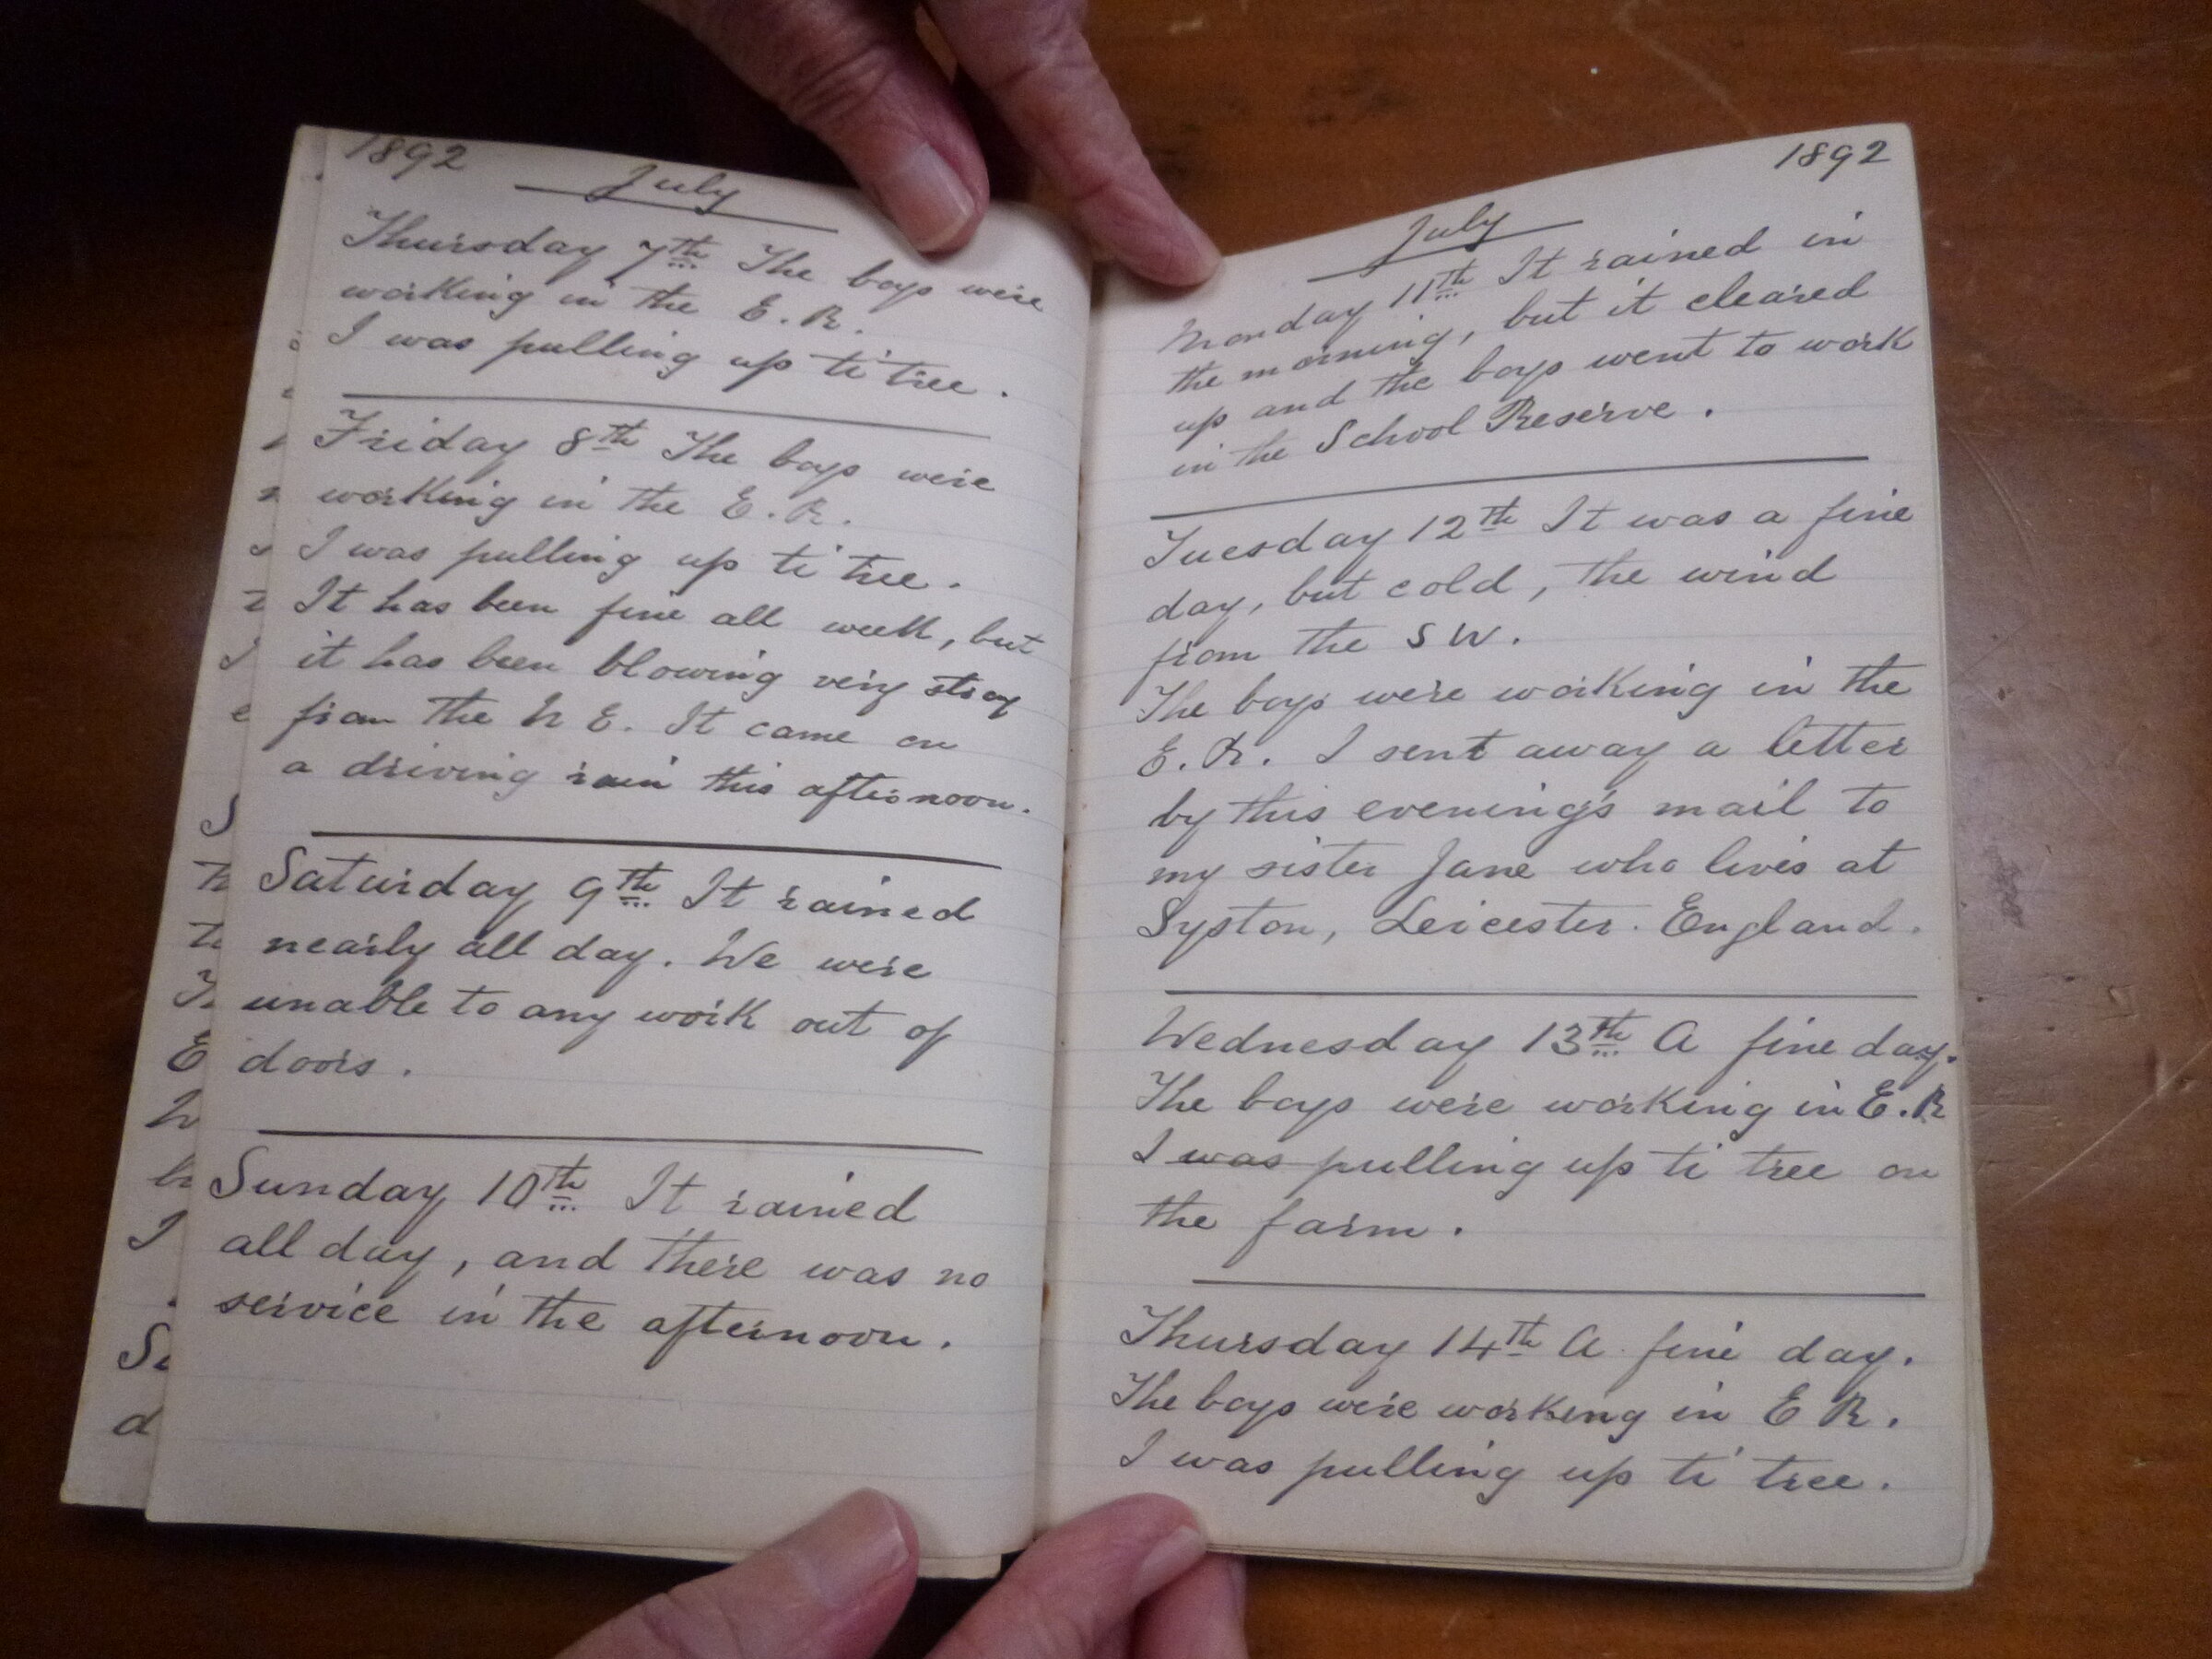 1892
July
Thursday 7th The boys were
working in the E. R.
I was pulling up ti tree.
Friday 8th The boys were
working in the E. R.
I was pulling up ti tree.
It has been fine all week, but
it has been blowing very strog
from the N E. It came on
a driving rain this afternoon.
Saturday 9th It rained
nearly all day. We were
unable to any work out of
doors.
Sunday 10th It rained
all day, and there was no
service in the afternoon.
1892
July
Monday 11th It rained in
the morning, but it cleared
up and the boys went to work
in the School Reserve.
Tuesday 12th It was a fine
day, but cold, the wind
from the S W.
The boys were working in the
E. R. I sent away a letter
by this evening's mail to
my sister Jane who lives at
Syston, Leicester. England.
Wednesday 13th A fine day.
The boys were working in E. R
I was pulling up ti tree on
the farm.
Thursday 14th A fine day.
The boys were working in E R.
I was pulling up ti tree.